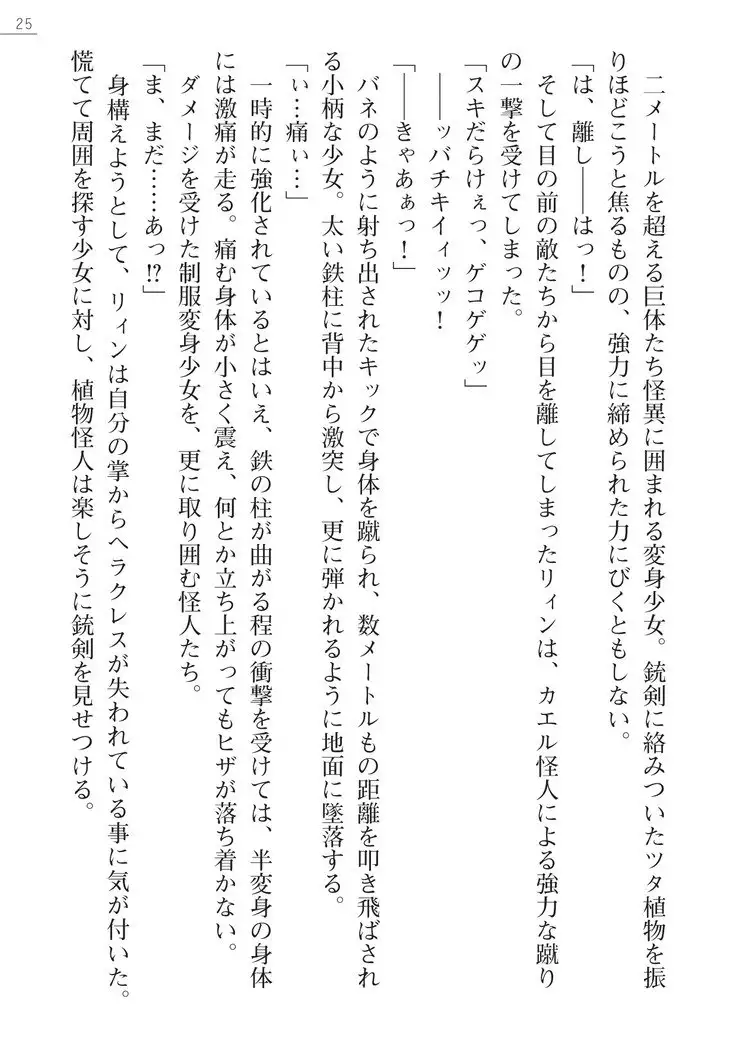 25
二メートルを超える巨体たち怪異に囲まれる変身少女。銃剣に絡みついたツタ植物を振
りほどこうと焦るものの、強力に締められた力にびくともしない。
「は、離し――はっ！」
そして目の前の敵たちから目を離してしまったリィンは、カエル怪人による強力な蹴り
の一撃を受けてしまった。
「スキだらけぇっ、ゲコゲゲッ」
――ッバチキイィッッ！
「――きゃあぁっ！」
バネのように射ち出されたキックで身体を蹴られ、数メートルもの距離を叩き飛ばされ
る小柄な少女。太い鉄柱に背中から激突し、更に弾かれるように地面に墜落する。
「ぃ…痛ぃ…」
一時的に強化されているとはいえ、鉄の柱が曲がる程の衝撃を受けては、半変身の身体
には激痛が走る。痛む身体が小さく震え、何とか立ち上がってもヒザが落ち着かない。
ダメージを受けた制服変身少女を、更に取り囲む怪人たち。
「ま、まだ……あっ!?」
身構えようとして、リィンは自分の掌からヘラクレスが失われている事に気が付いた。
慌てて周囲を探す少女に対し、植物怪人は楽しそうに銃剣を見せつける。